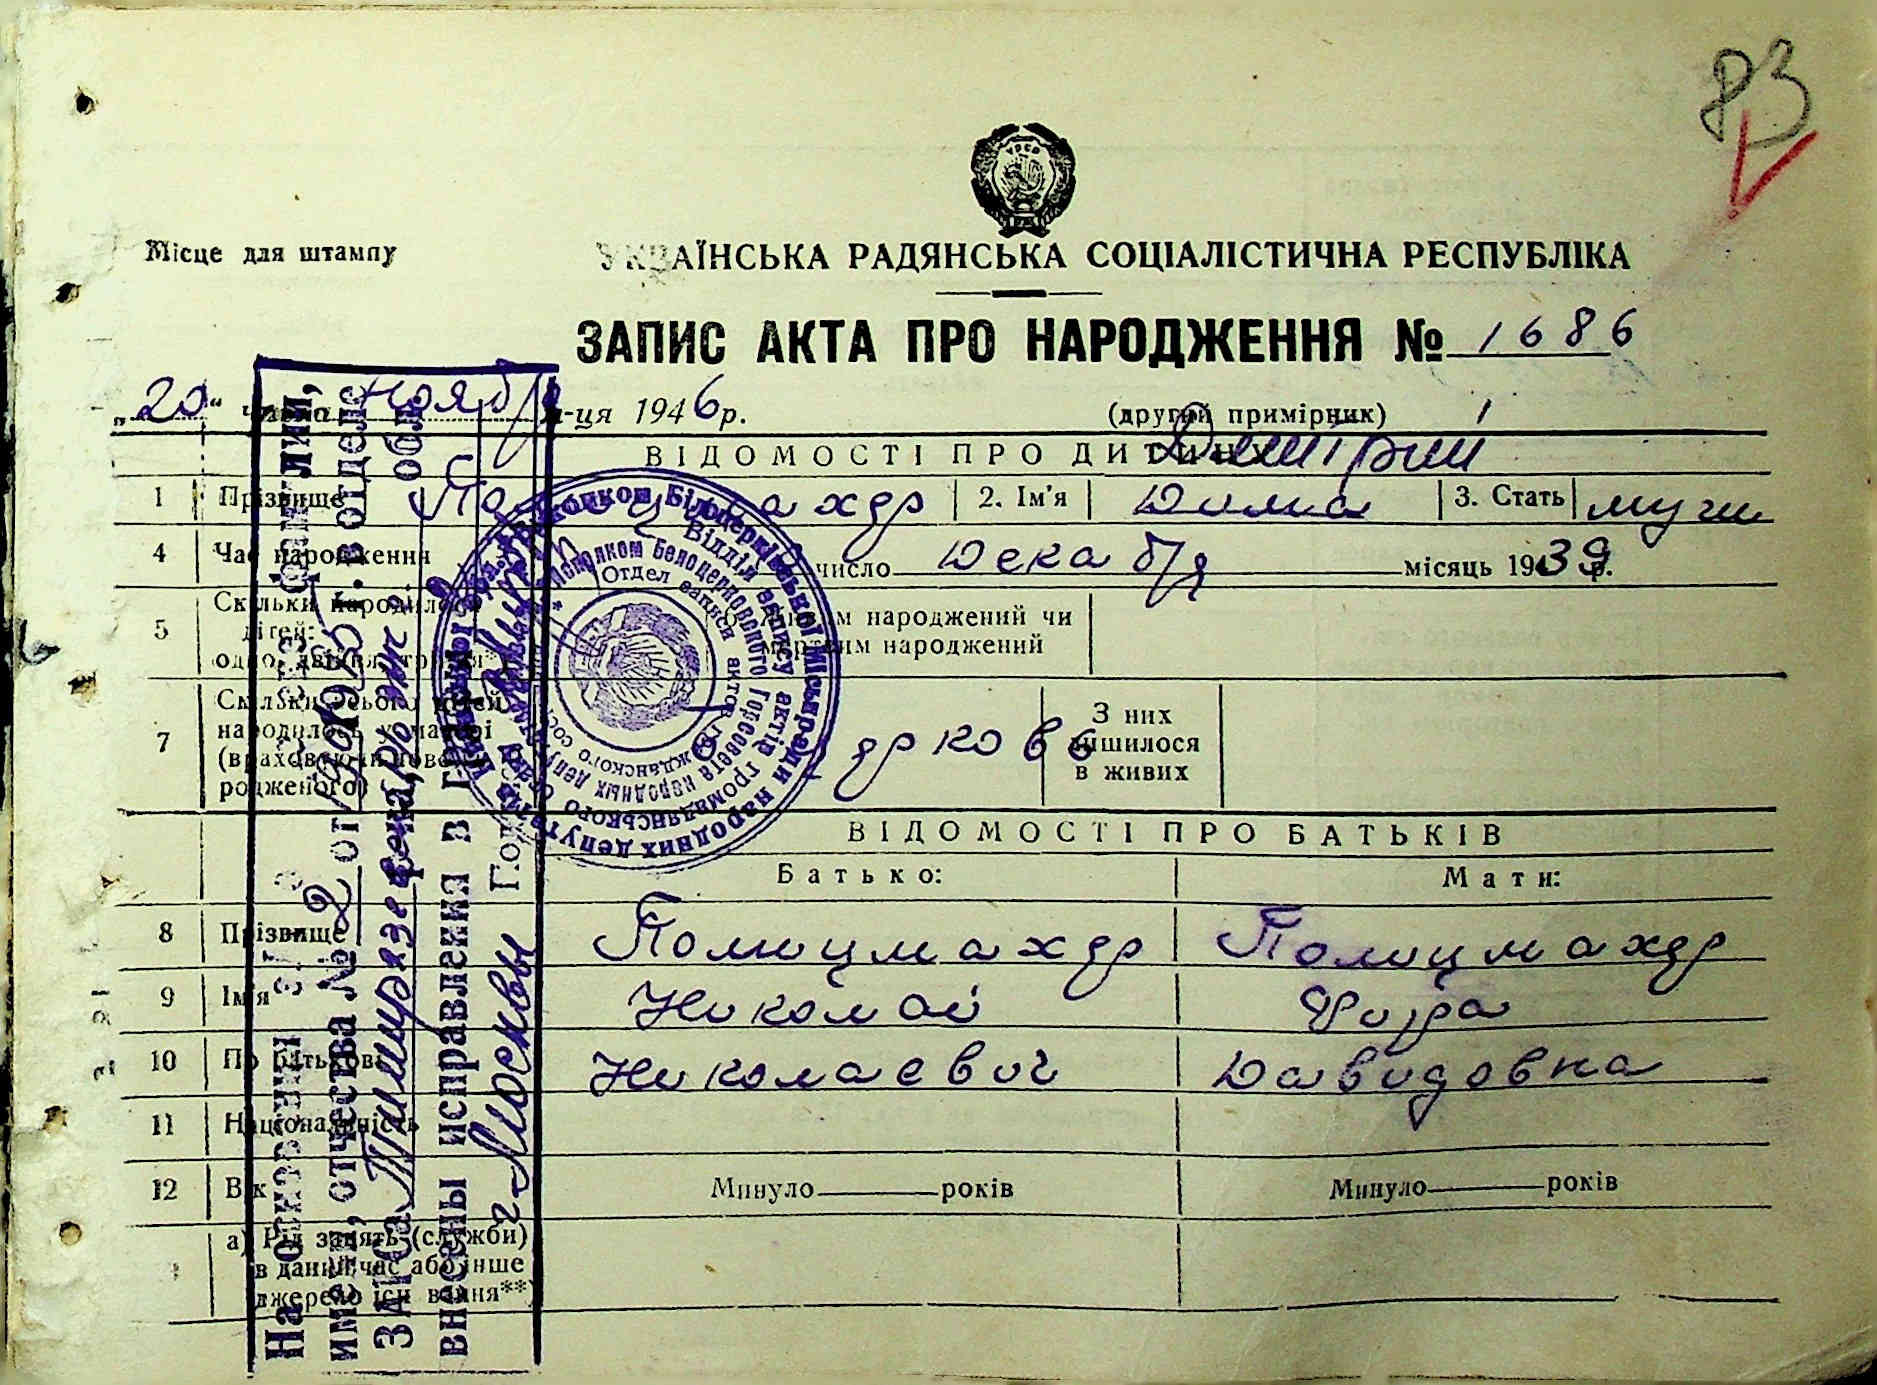 83
УРСР
Місце для штампу
УКРАЇНСЬКА РАДЯНСЬКА СОЦІАЛІСТИЧНА РЕСПУБЛІКА
ЗАПИС АКТА ПРО НАРОДЖЕННЯ № 1686
„20“ числа ноября м-ця 1946 р. (другий примірник)
ВІДОМОСТІ ПРО ДИТИНУ Дмітрий
1 Прізвище Полицмахер 2. Ім'я Дима 3. Стать муж
4 Час народження число Декабря місяць 1939 р.
5 Скільки народилося дітей: одно, двійня, трійня*) живим народжений чи мертвим народжений
7 Скільки усього дітей народилось у матері (враховуючи новонародженого) З них лишилося в живих
ВІДОМОСТІ ПРО БАТЬКІВ
Батько: Мати:
8 Прізвище Полицмахер Полицмахер
9 Ім'я Николай Фира
10 По батькові Николаевич Давидовна
11 Національність
12 Вік Минуло років Минуло років
а) Рід занять (службы) в даний час або інше джерело існування**)
На основании
имени, отчества № 2 от
ЗАГСа Тимирязевск
внесены исправления в
г. Москвы
Виконком Білоцерківської міськради народних депутатів
Відділ запису актів громадянського
Исполком Белоцерковского Горсовета народных депутатов
Отдел записи актов гражданского сост